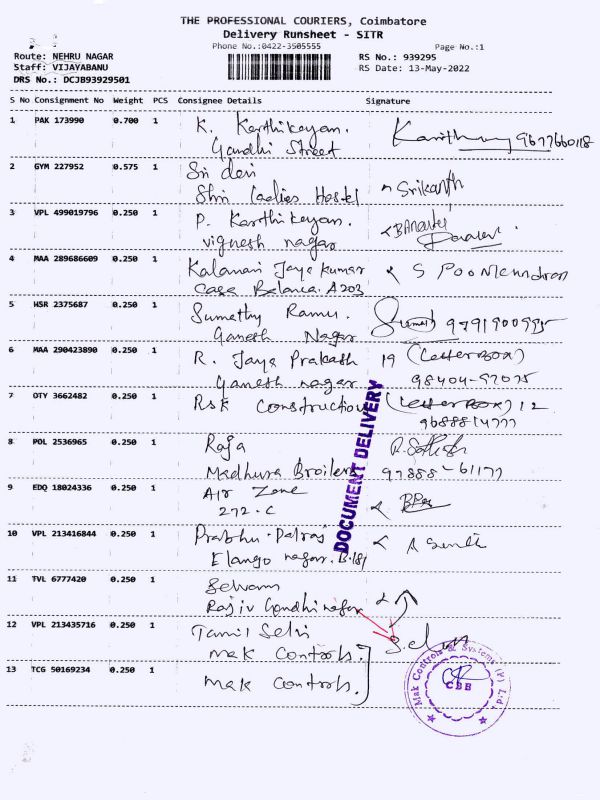 THE PROFESSIONAL COURIERS, Coimbatore
Delivery Runsheet - SITR
Phone No.:0422-3505555 Page No.:1
Route: NEHRU NAGAR RS No.: 939295
Staff: VIJAYABANU RS Date: 13-May-2022
DRS No.: DCJB93929501
S No Consignment No Weight PCS Consignee Details Signature
1 PAK 173990 0.700 1 K. Karthikeyan. 9677660118
Gandhi Street
2 GYM 227952 0.575 1 Sri devi
Shri Ladies Hostel Srikanth
3 VPL 499019796 0.250 1 P. Karthikeyan.
vignesh nagar
4 MAA 289686609 0.250 1 Kalanani Jaya kumar
Casa Belanca. A203
5 HSR 2375687 0.250 1 Sumathy Ramu.
Ganesh Nagar
6 MAA 290423890 0.250 1 R. Jaya Prakash 19 (Letter Box)
Ganesh nagar 98404-97075
7 OTY 3662482 0.250 1 RSK Construction (Letter Box) 12
8 POL 2536965 0.250 1 Raja
Madhura Broilers 97888-61177
9 EDQ 18024336 0.250 1 Air Zone
272-C
10 VPL 213416844 0.250 1 Prabhu.
Elango nagar. B.181
11 TVL 6777420 0.250 1 Selvam
Rajiv Gandhi nagar
12 VPL 213435716 0.250 1 Tamil Selvi
Mak Controls.
13 TCG 50169234 0.250 1 Mak Controls.
DOCUMENT DELIVERY
Mak Controls & Systems (P) Ltd.
CBE